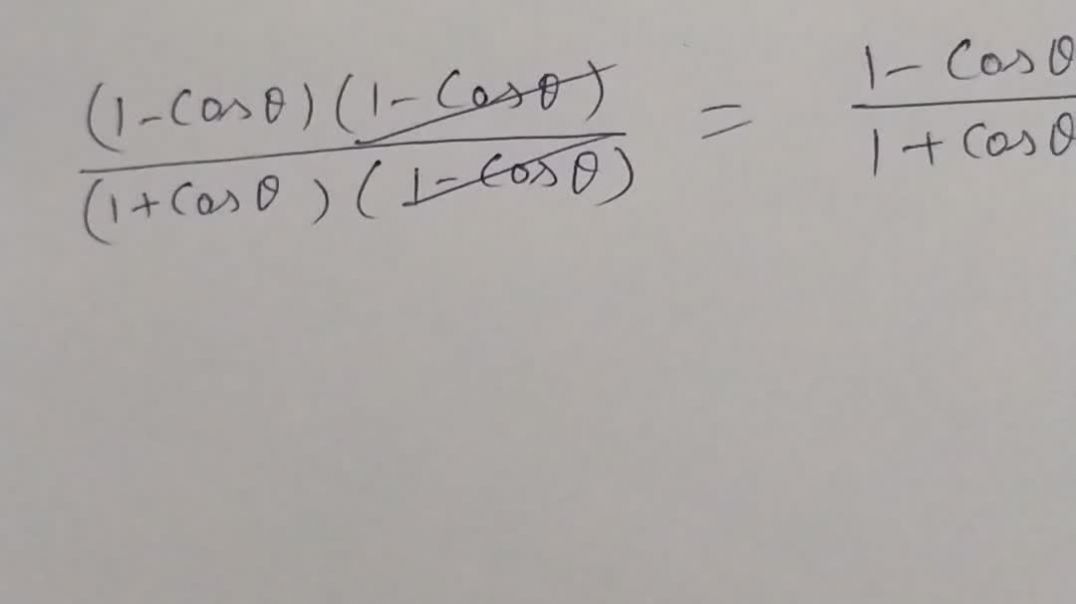 (1-Cosθ)(1-Cosθ) / (1+Cosθ)(1-Cosθ) = 1-Cosθ / 1+Cosθ